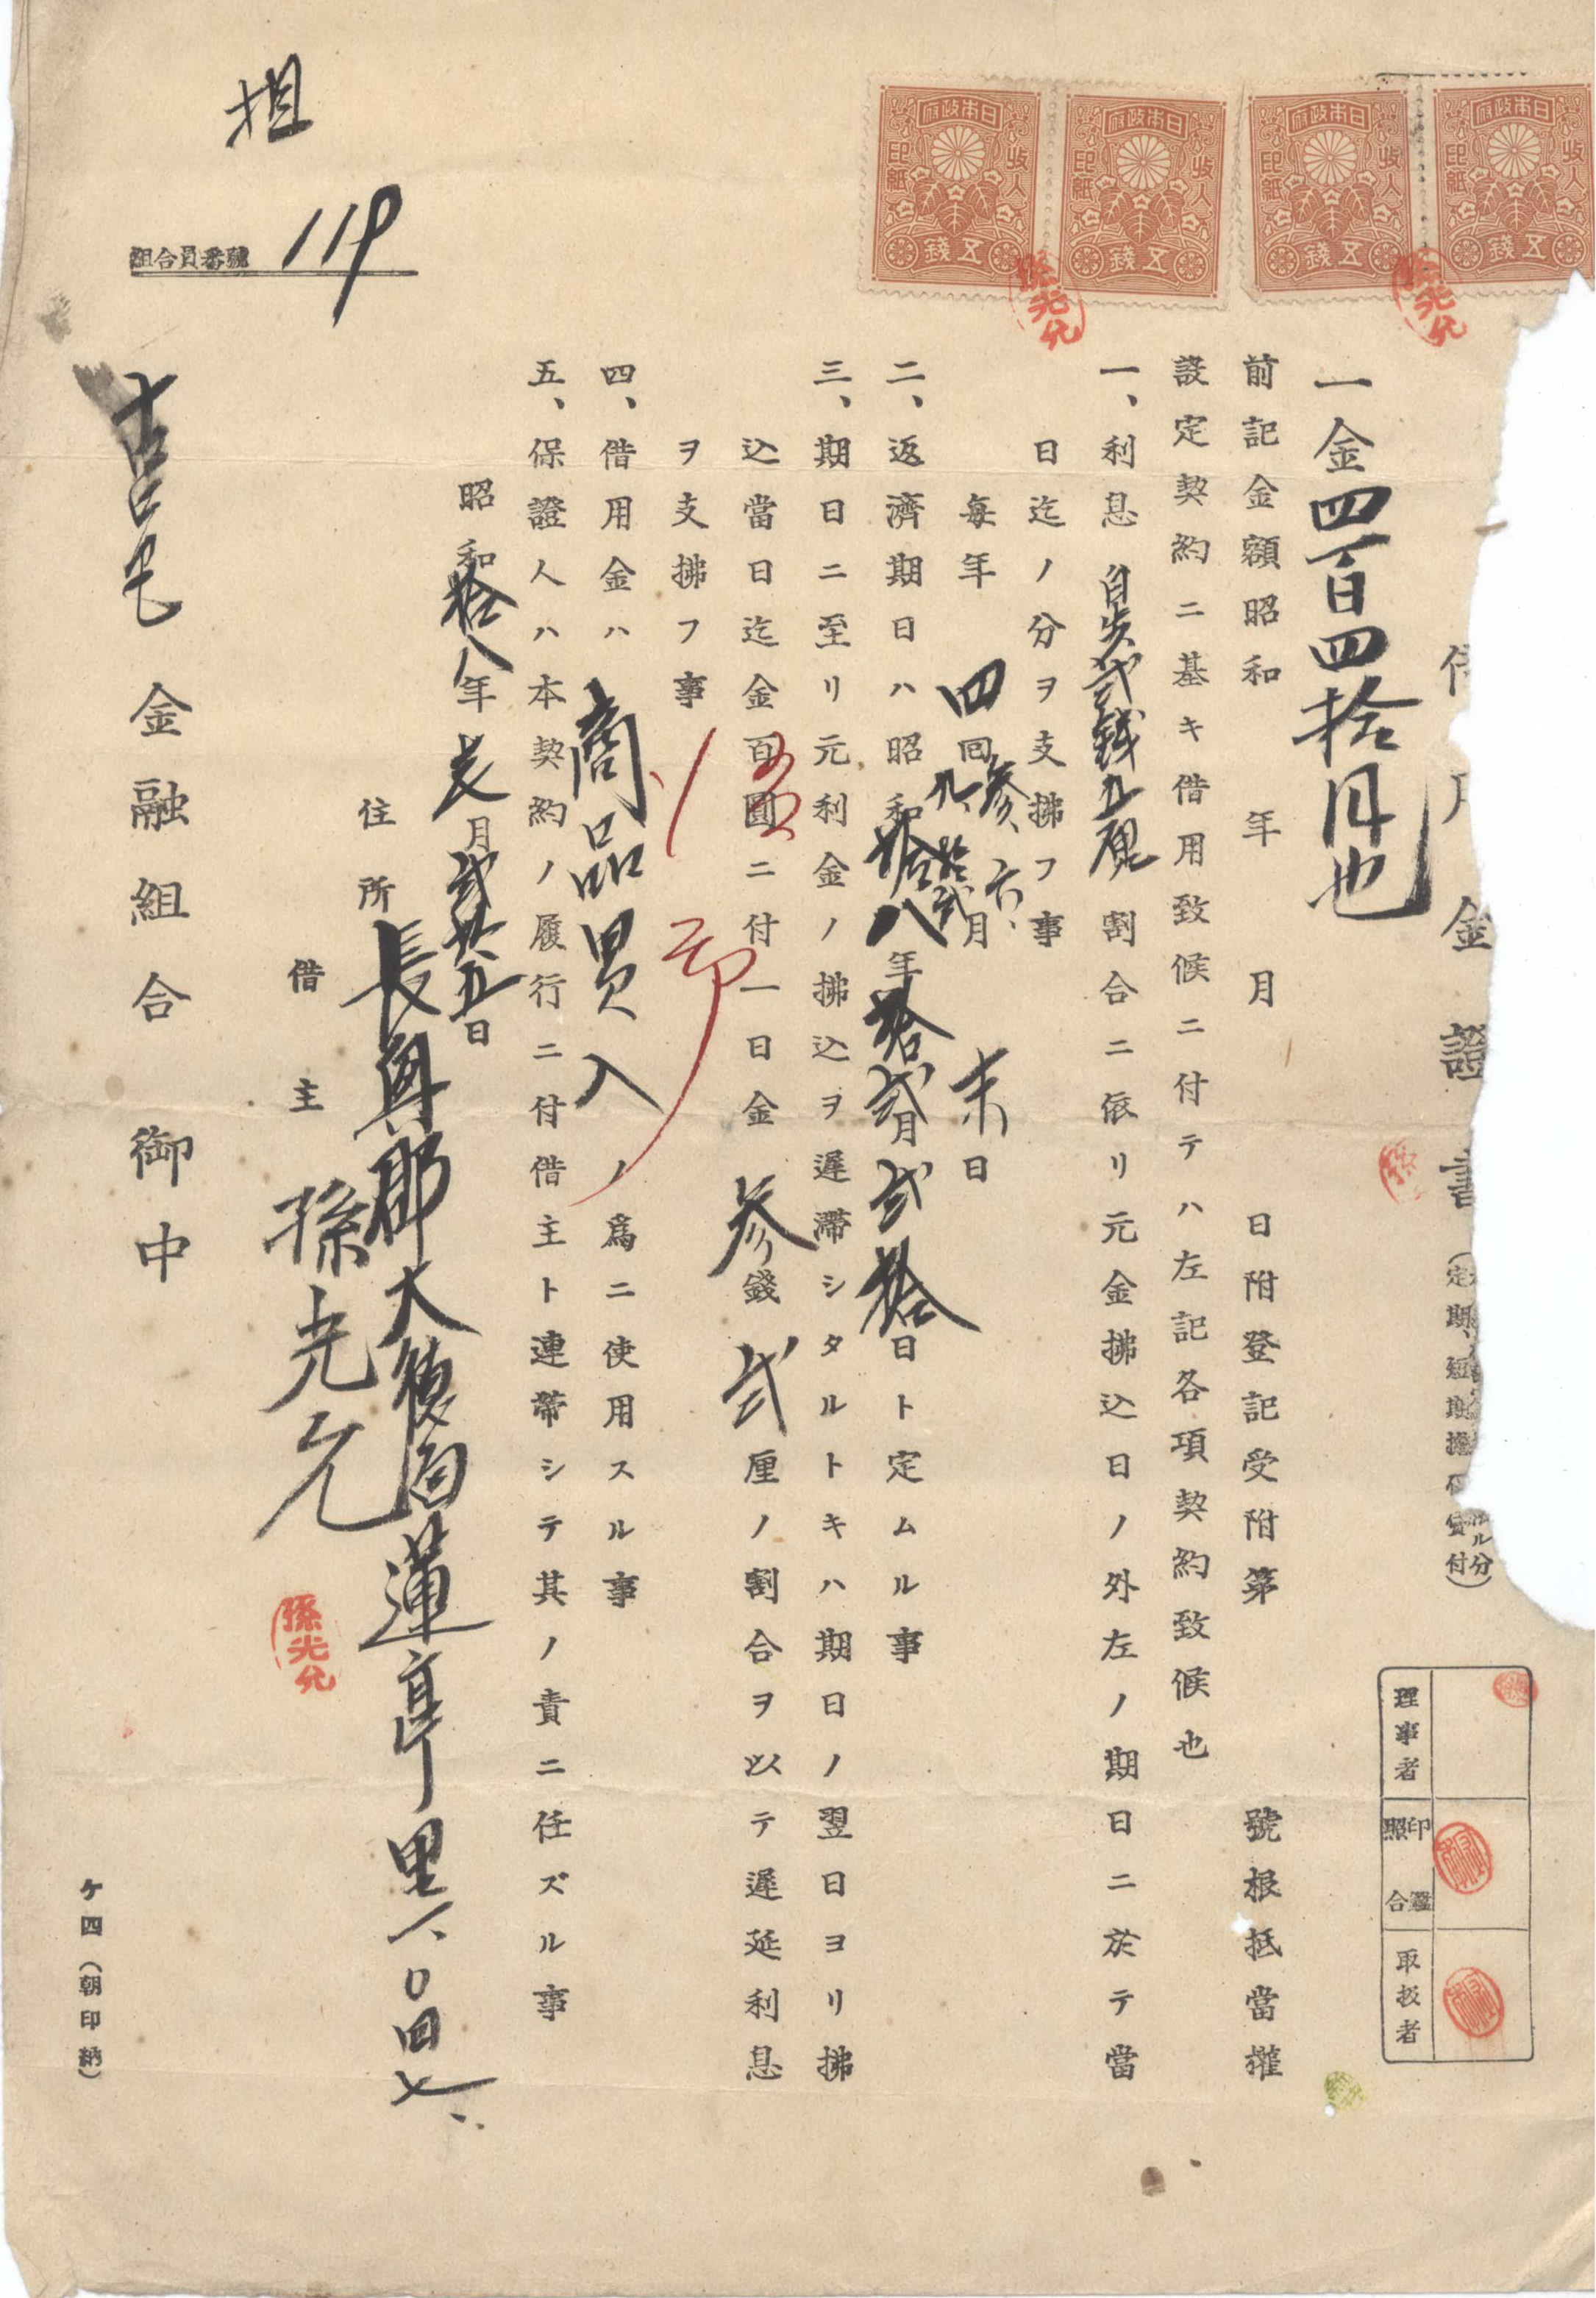 日本政府
收入印紙
五錢
日本政府
收入印紙
五錢
日本政府
收入印紙
五錢
日本政府
收入印紙
五錢
孫光允
孫光允
金證書
一金四百四拾円也
前記金額昭和 年 月 日附登記受附第 號根抵當權
設定契約ニ基キ借用致候ニ付テハ左記各項契約致候也
一、利息 百円ニ付 割合ニ依リ元金拂込日ノ外左ノ期日ニ於テ當
日迄ノ分ヲ支拂フ事
每年四回 參、六、九、拾貳月末日
二、返濟期日ハ昭和拾八年拾貳月貳拾日ト定ムル事
三、期日ニ至リ元利金ノ拂込ヲ遲滯シタルトキハ期日ノ翌日ヨリ拂
込當日迄金百圓ニ付一日金參錢貳厘ノ割合ヲ以テ遲延利息
ヲ支拂フ事
四、借用金ハ商品買入ノ爲ニ使用スル事
五、保證人ハ本契約ノ履行ニ付借主ト連帶シテ其ノ責ニ任ズル事
昭和拾八年 月貳拾五日
住所 長興郡大德面蓮亭里一〇四七
借主 孫光允
孫光允
金融組合御中
組合員番號 119
理事者
印鑑照合
取扱者
ケ四(朝印納)